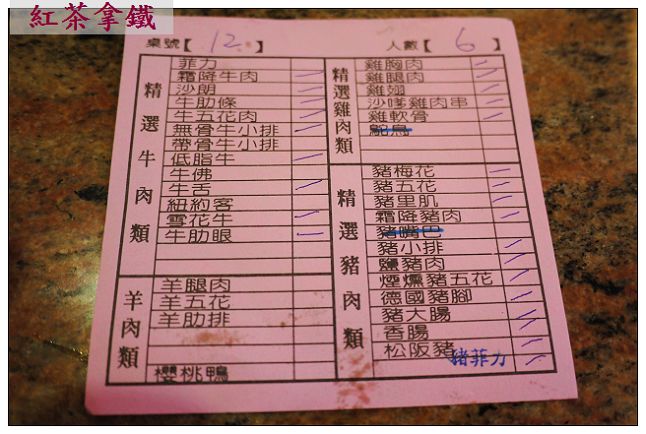 紅茶拿鐵
桌號【 12 】
人數【 6 】
精選牛肉類
菲力
霜降牛肉
沙朗
牛肋條
牛五花肉
無骨牛小排
帶骨牛小排
低脂牛
牛佛
牛舌
紐約客
雪花牛
牛肋眼
羊肉類
羊腿肉
羊五花
羊肋排
櫻桃鴨
精選雞肉類
雞胸肉
雞腿肉
雞翅
沙嗲雞肉串
雞軟骨
鴕鳥
精選豬肉類
豬梅花
豬五花
豬里肌
霜降豬肉
豬嘴巴
豬小排
鹽豬肉
煙燻豬五花
德國豬腳
豬大腸
香腸
松阪豬
豬菲力